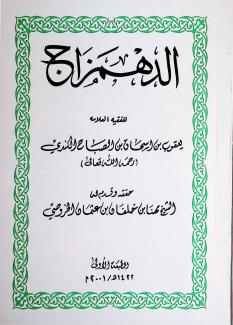 الدهم زاج
للفقيه العلامه
يعقوب بن اسحاق بن الصباح الكندي
(رحمه الله تعالى)
حققه وقدم له
الشيخ مهنا بن خلفان بن عثمان الخروصي
الطبعة الأولى
١٤٢٢هـ/٢٠٠١م